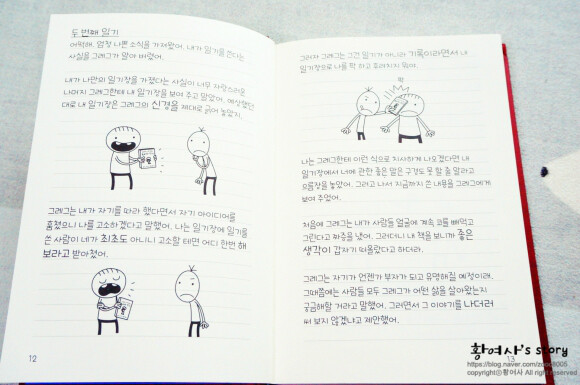 두 번째 일기
어떡해. 엄청 나쁜 소식을 가져왔어. 내가 일기를 쓴다는
사실을 그레그가 알아 버렸어.
내가 나만의 일기장을 가졌다는 사실이 너무 자랑스러운
나머지 그레그한테 내 일기장을 보여 주고 말았어. 예상했던
대로 내 일기장은 그레그의 신경을 제대로 긁어 놓았지.
그레그는 내가 자기를 따라 했다면서 자기 아이디어를
훔쳤으니 나를 고소하겠다고 말했어. 나는 일기장에 일기를
쓴 사람이 네가 최초도 아니니 고소할 테면 어디 한번 해
보라고 받아쳤어.
12
그러자 그레그는 그건 일기가 아니라 기록이라면서 내
일기장으로 나를 퍽 하고 후려치지 뭐야.
퍽
나는 그레그한테 이런 식으로 치사하게 나오겠다면 내
일기장에서 너에 관한 좋은 말은 구경도 못 할 줄 알라고
으름장을 놓았어. 그러고 나서 지금까지 쓴 내용을 그레그에게
보여 주었어.
처음에 그레그는 내가 사람들 얼굴에 계속 코를 빼먹고
그린다고 짜증을 냈어. 그러더니 내 책을 보니까 좋은
생각이 갑자기 떠올랐다고 하더라.
그레그는 자기가 언젠가 부자가 되고 유명해질 예정이래.
그때쯤에는 사람들 모두 그레그가 어떤 삶을 살아왔는지
궁금해할 거라고 말했어. 그러면서 그 이야기를 나더러
써 보지 않겠냐고 제안했어.
13
황여사's story
copyrightⓒ황여사 All rights reserved